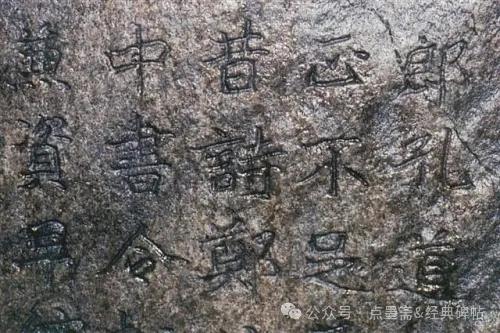 郎孔道
正不足
昔詩鄭
中書令
兼資早
公众号 · 点墨斋&经典碑帖